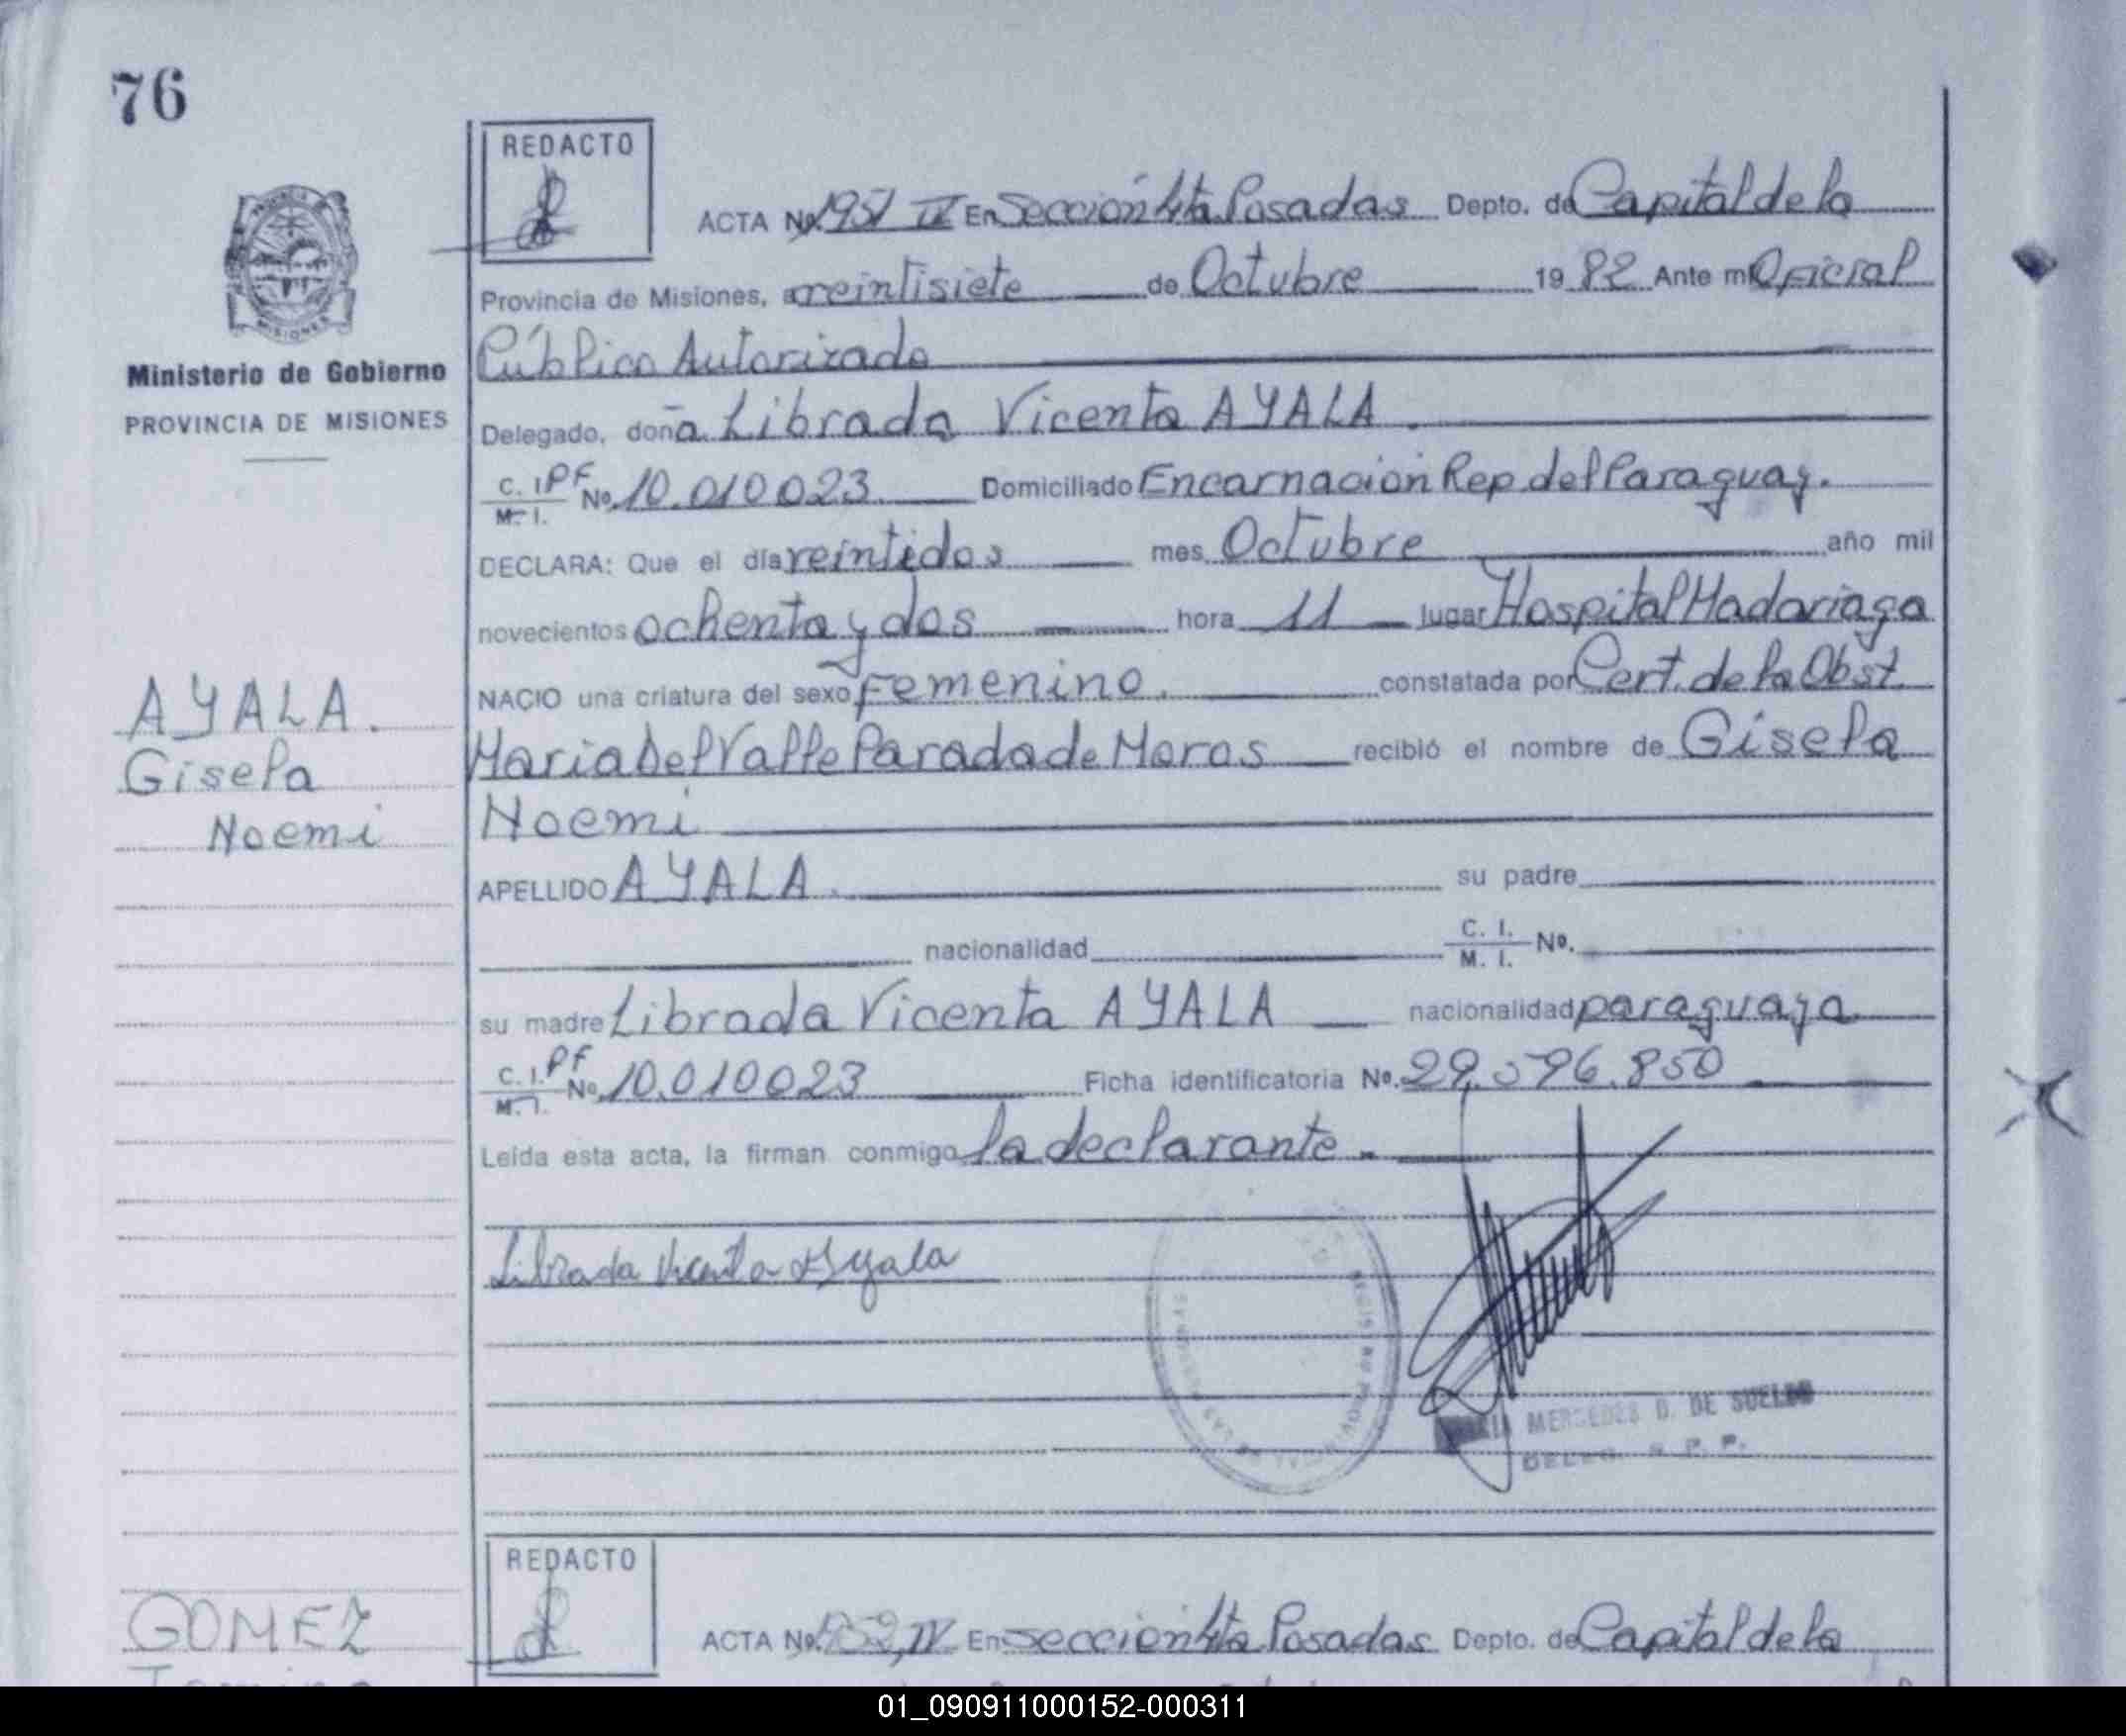 76
REDACTO
ACTA No. 1951 IV En Sección 4ta Posadas Depto. de Capital de la
Provincia de Misiones, a veintisiete de Octubre 1982 Ante mi Oficial
Público Autorizado
Ministerio de Gobierno
PROVINCIA DE MISIONES
Delegado, doña Librada Vicenta AYALA.
C. I. PF M. I. No. 10.010023 Domiciliado Encarnación Rep. del Paraguay.
DECLARA: Que el día veintidos mes Octubre año mil
novecientos ochenta y dos hora 11 lugar Hospital Madariaga
NACIO una criatura del sexo Femenino. constatada por Cert. de la Obst.
Maria Del Valle Parada de Moros recibió el nombre de Gisela
Noemi
AYALA.
Gisela
Noemi
APELLIDO AYALA. su padre
nacionalidad C. I. M. I. No.
su madre Librada Vicenta AYALA nacionalidad paraguaya
C. I. PF M. I. No. 10.010023 Ficha identificatoria No. 29.596.850
Leída esta acta, la firman conmigo la declarante.
Librada Vicenta Ayala
MERCEDES D. DE SUELDO
REDACTO
GOMEZ
ACTA No. 1952, IV En sección 4ta Posadas Depto. de Capital de la
01_090911000152-000311